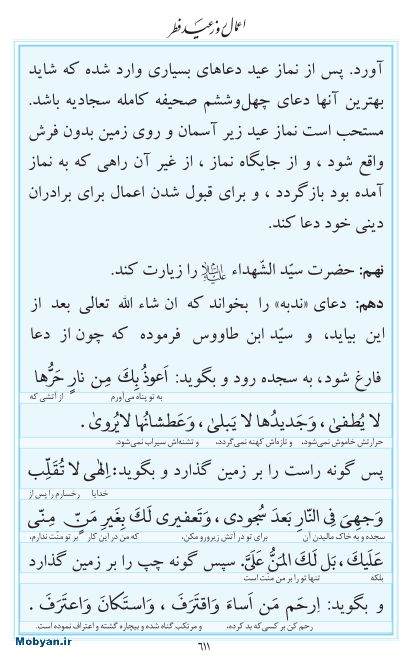 اعمال روز عید فطر
آورد. پس از نماز عید دعاهای بسیاری وارد شده که شاید
بهترین آنها دعای چهل‌وششم صحیفه کامله سجادیه باشد.
مستحب است نماز عید زیر آسمان و روی زمین بدون فرش
واقع شود ، و از جایگاه نماز ، از غیر آن راهی که به نماز
آمده بود بازگردد ، و برای قبول شدن اعمال برای برادران
دینی خود دعا کند.
نهم: حضرت سیّد الشّهداء علیه‌السلام را زیارت کند.
دهم: دعای «ندبه» را بخواند که ان شاء الله تعالی بعد از
این بیاید، و سیّد ابن طاووس فرموده که چون از دعا
فارغ شود، به سجده رود و بگوید: اَعوذُ بِكَ مِن نارٍ حَرُّها
به تو پناه می‌آورم از آتشی که
لا يُطفىٰ ، وَجَديدُها لا يَبلىٰ، وَعَطشانُها لايُروىٰ .
حرارتش خاموش نمی‌شود، و تازه‌اش کهنه نمی‌گردد، و تشنه‌اش سیراب نمی‌شود.
پس گونه راست را بر زمین گذارد و بگوید: اِلٰهى لا تُقَلِّب
خدایا رخسارم را پس از
وَجهىَ فِى النّارِ بَعدَ سُجودى ، وَتَعفيرى لَكَ بِغَيرِ مَنٍّ مِنّى
سجده و به خاک مالیدن آن برای تو در آتش زیرورو مکن، که من در این کار بر تو منّت ندارم،
عَلَيكَ ، بَل لَكَ المَنُّ عَلَىَّ. سپس گونه چپ را بر زمین گذارد
بلکه تنها تو را بر من منّت است
و بگوید: اِرحَم مَن اَساءَ وَاقتَرَفَ ، وَاستَكانَ وَاعتَرَفَ .
رحم کن بر کسی‌که بد کرده، و مرتکب گناه شده و بیچاره گشته و اعتراف نموده است.
۶۱۱
Mobyan.ir